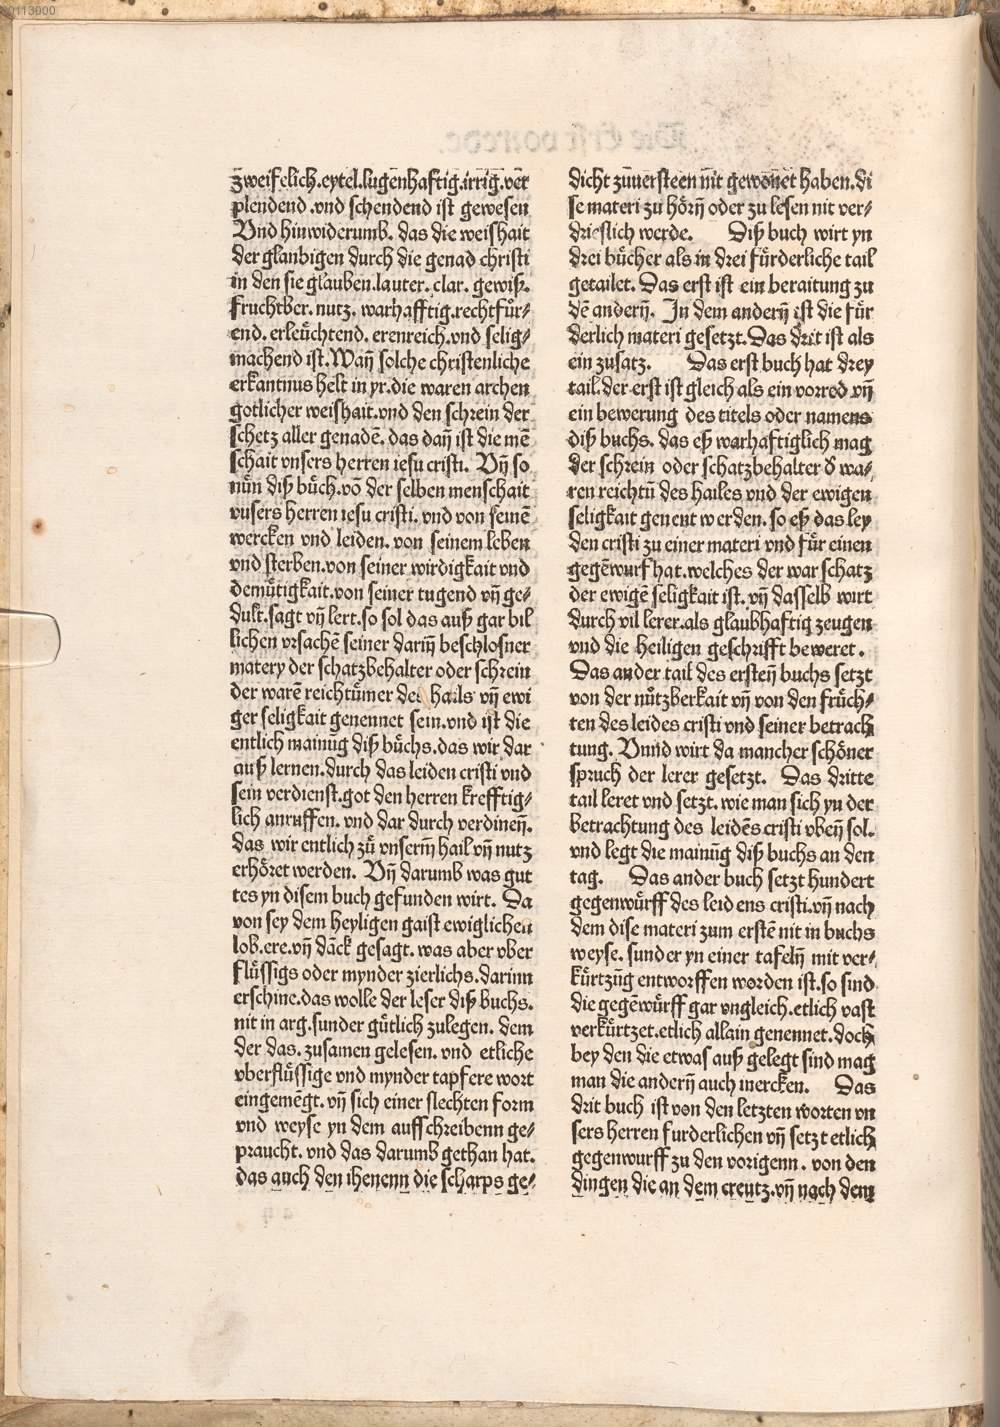 zweifelich.eytel.lugenhaftig.irrig.ver
plendend .vnd schendend ist gewesen
Vnd hinwiderumb. das die weishait
der glaubigen durch die genad christi
in den sie glauben.lauter. clar. gewiß.
fruchtber. nutz. warhafftig.rechtfuͤr⸗
end. erleuͤchtend. erenreich.vnd selig⸗
machend ist.Wañ solche christenliche
erkantnus helt in yr.die waren archen
gotlicher weishait.vnd den schrein der
schetz aller genadē. das dañ ist die mē
schait vnsers herren iesu cristi. Vñ so
nuͤn diß buͤch.võ der selben menschait
vnsers herren iesu cristi. vnd von seinē
wercken vnd leiden. von seinem leben
vnd sterben.von seiner wirdigkait vnd
demuͤtigkait.von seiner tugend vñ ge⸗
dult.sagt vñ lert.so sol das auß gar bil
lichen vrsachē seiner dariñ beschlosner
matery der schatzbehalter oder schrein
der warē reichtuͤmer des hails vñ ewi
ger seligkait genennet sein.vnd ist die
entlich mainūg diß buͤchs.das wir dar
auß lernen.durch das leiden cristi vnd
sein verdienst.got den herren krefftig⸗
lich anruffen. vnd dar durch verdineñ.
das wir entlich zuͤ vnserm̄ hail vñ nutz
erhoͤret werden. Vñ darumb was gut
tes yn disem buch gefunden wirt. Da
von sey dem heyligen gaist ewiglichen
lob.ere.vñ dāck gesagt. was aber vber
fluͤssigs oder mynder zierlichs.darinn
erschine.das wolle der leser diß buchs.
nit in arg.sunder guͤtlich zulegen. dem
der das. zusamen gelesen. vnd etliche
vberfluͤssige vnd mynder tapfere wort
eingemēgt. vñ sich einer slechten form
vnd weyse yn dem auffschreibenn ge⸗
praucht. vnd das darumb gethan hat.
das auch den ihenenn die scharps ge⸗
dicht zuuersteen nit gewonet haben.di
se materi zu hoͤrñ oder zu lesen nit ver⸗
drieslich werde. Diß buch wirt yn
drei buͤcher als in drei fuͤrderliche tail
getailet. Das erst ist ein beraitung zu
dē anderñ. In dem anderñ ist die fuͤr
derlich materi gesetzt.Das drit ist als
ein zusatz. Das erst buch hat drey
tail.der erst ist gleich als ein vorred vñ
ein bewerung des titels oder namens
diß buchs. das eß warhaftiglich mag
der schrein oder schatzbehalter đ wa⸗
ren reichtū des hailes vnd der ewigen
seligkait genent werden. so eß das ley
den cristi zu einer materi vnd fuͤr einen
gegēwurf hat.welches der war schatz
der ewigē seligkait ist. vñ dasselb wirt
durch vil lerer.als glaubhaftig zeugen
vnd die heiligen geschrifft beweret .
Das ander tail des ersteñ buchs setzt
von der nuͤtzberkait vñ von den fruͤch⸗
ten des leides cristi vnd seiner betrach
tung. Vnnd wirt da mancher schoͤner
spruch der lerer gesetzt. Das dritte
tail leret vnd setzt. wie man sich yn der
betrachtung des leidēs cristi vbeñ sol.
vnd legt die mainūg diß buchs an den
tag. Das ander buch setzt hundert
gegenwuͤrff des leidens cristi.vñ nach
dem dise materi zum erstē nit in buchs
weyse. sunder yn einer tafelñ mit ver⸗
kuͤrtzūg entworffen worden ist.so sind
die gegēwuͤrff gar vngleich.etlich vast
verkuͤrtzet.etlich allain genennet.doch
bey den die etwas auß gelegt sind mag
man die anderñ auch mercken. Das
drit buch ist von den letzten worten vn
sers herren furderlichen vñ setzt etlich
gegenwurff zu den vorigenn. von den
dingen die an dem creutz.vñ nach dem